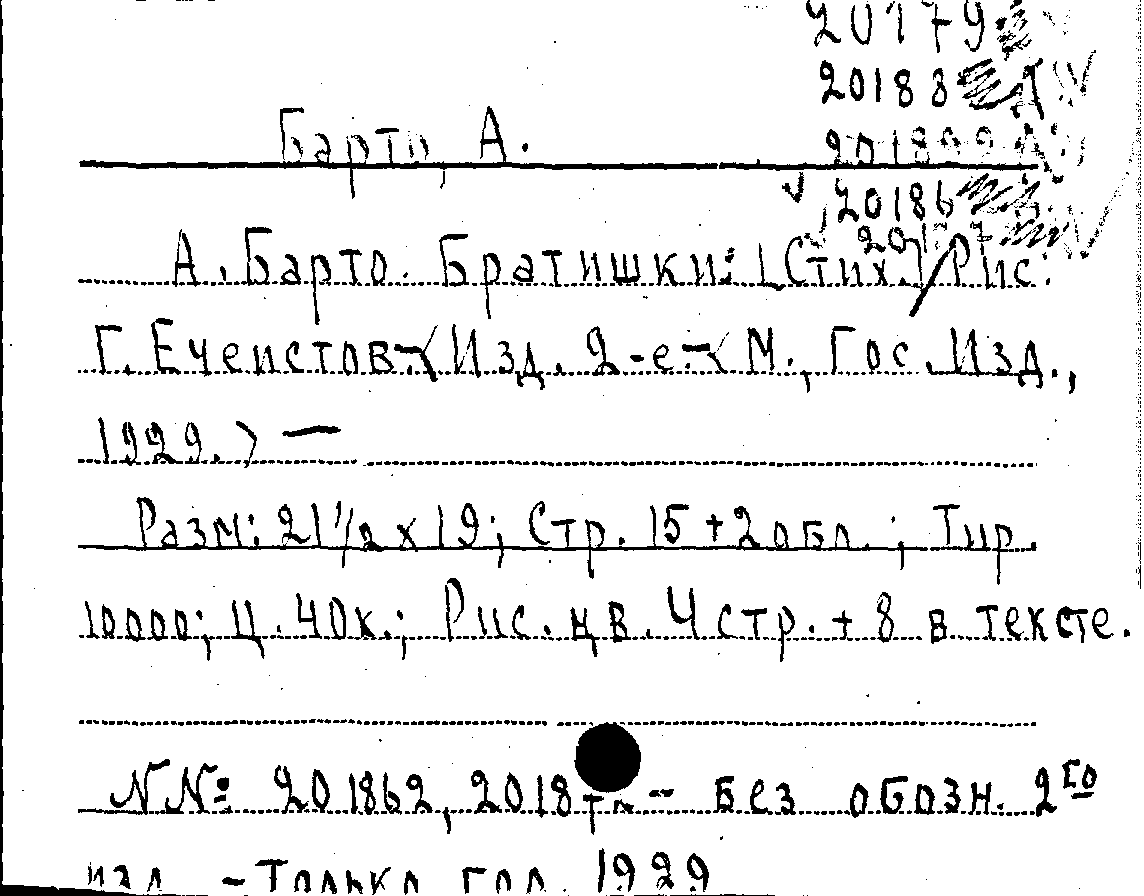 20179
20188
Барто, А.
20186
А. Барто. Братишки: [Стих.] Рис.
Г. Ечеистов. Изд. 2-е. М., Гос. Изд.,
1929. ) —
Разм: 21 1/2 x 19; Стр. 15 + 2 обл.; Тир.
10000; Ц. 40к.; Рис. цв. 4 стр. + 8 в тексте.
NNº: 201862, 2018 -- без обозн. 2го
изд. - Только год 1929